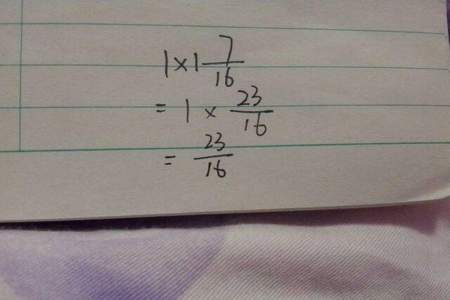 1×1 7/16
= 1 × 23/16
= 23/16